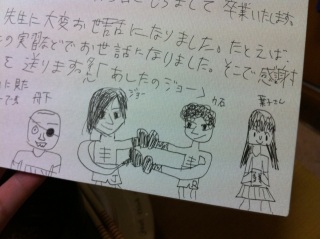 まして 卒業いたします。
先生に大変お世話になりました。たとえば
の実習などでお世話になりました。そこで感謝
を送ります。
「あしたのジョー」
丹下
ジョー
力石
葉子さん